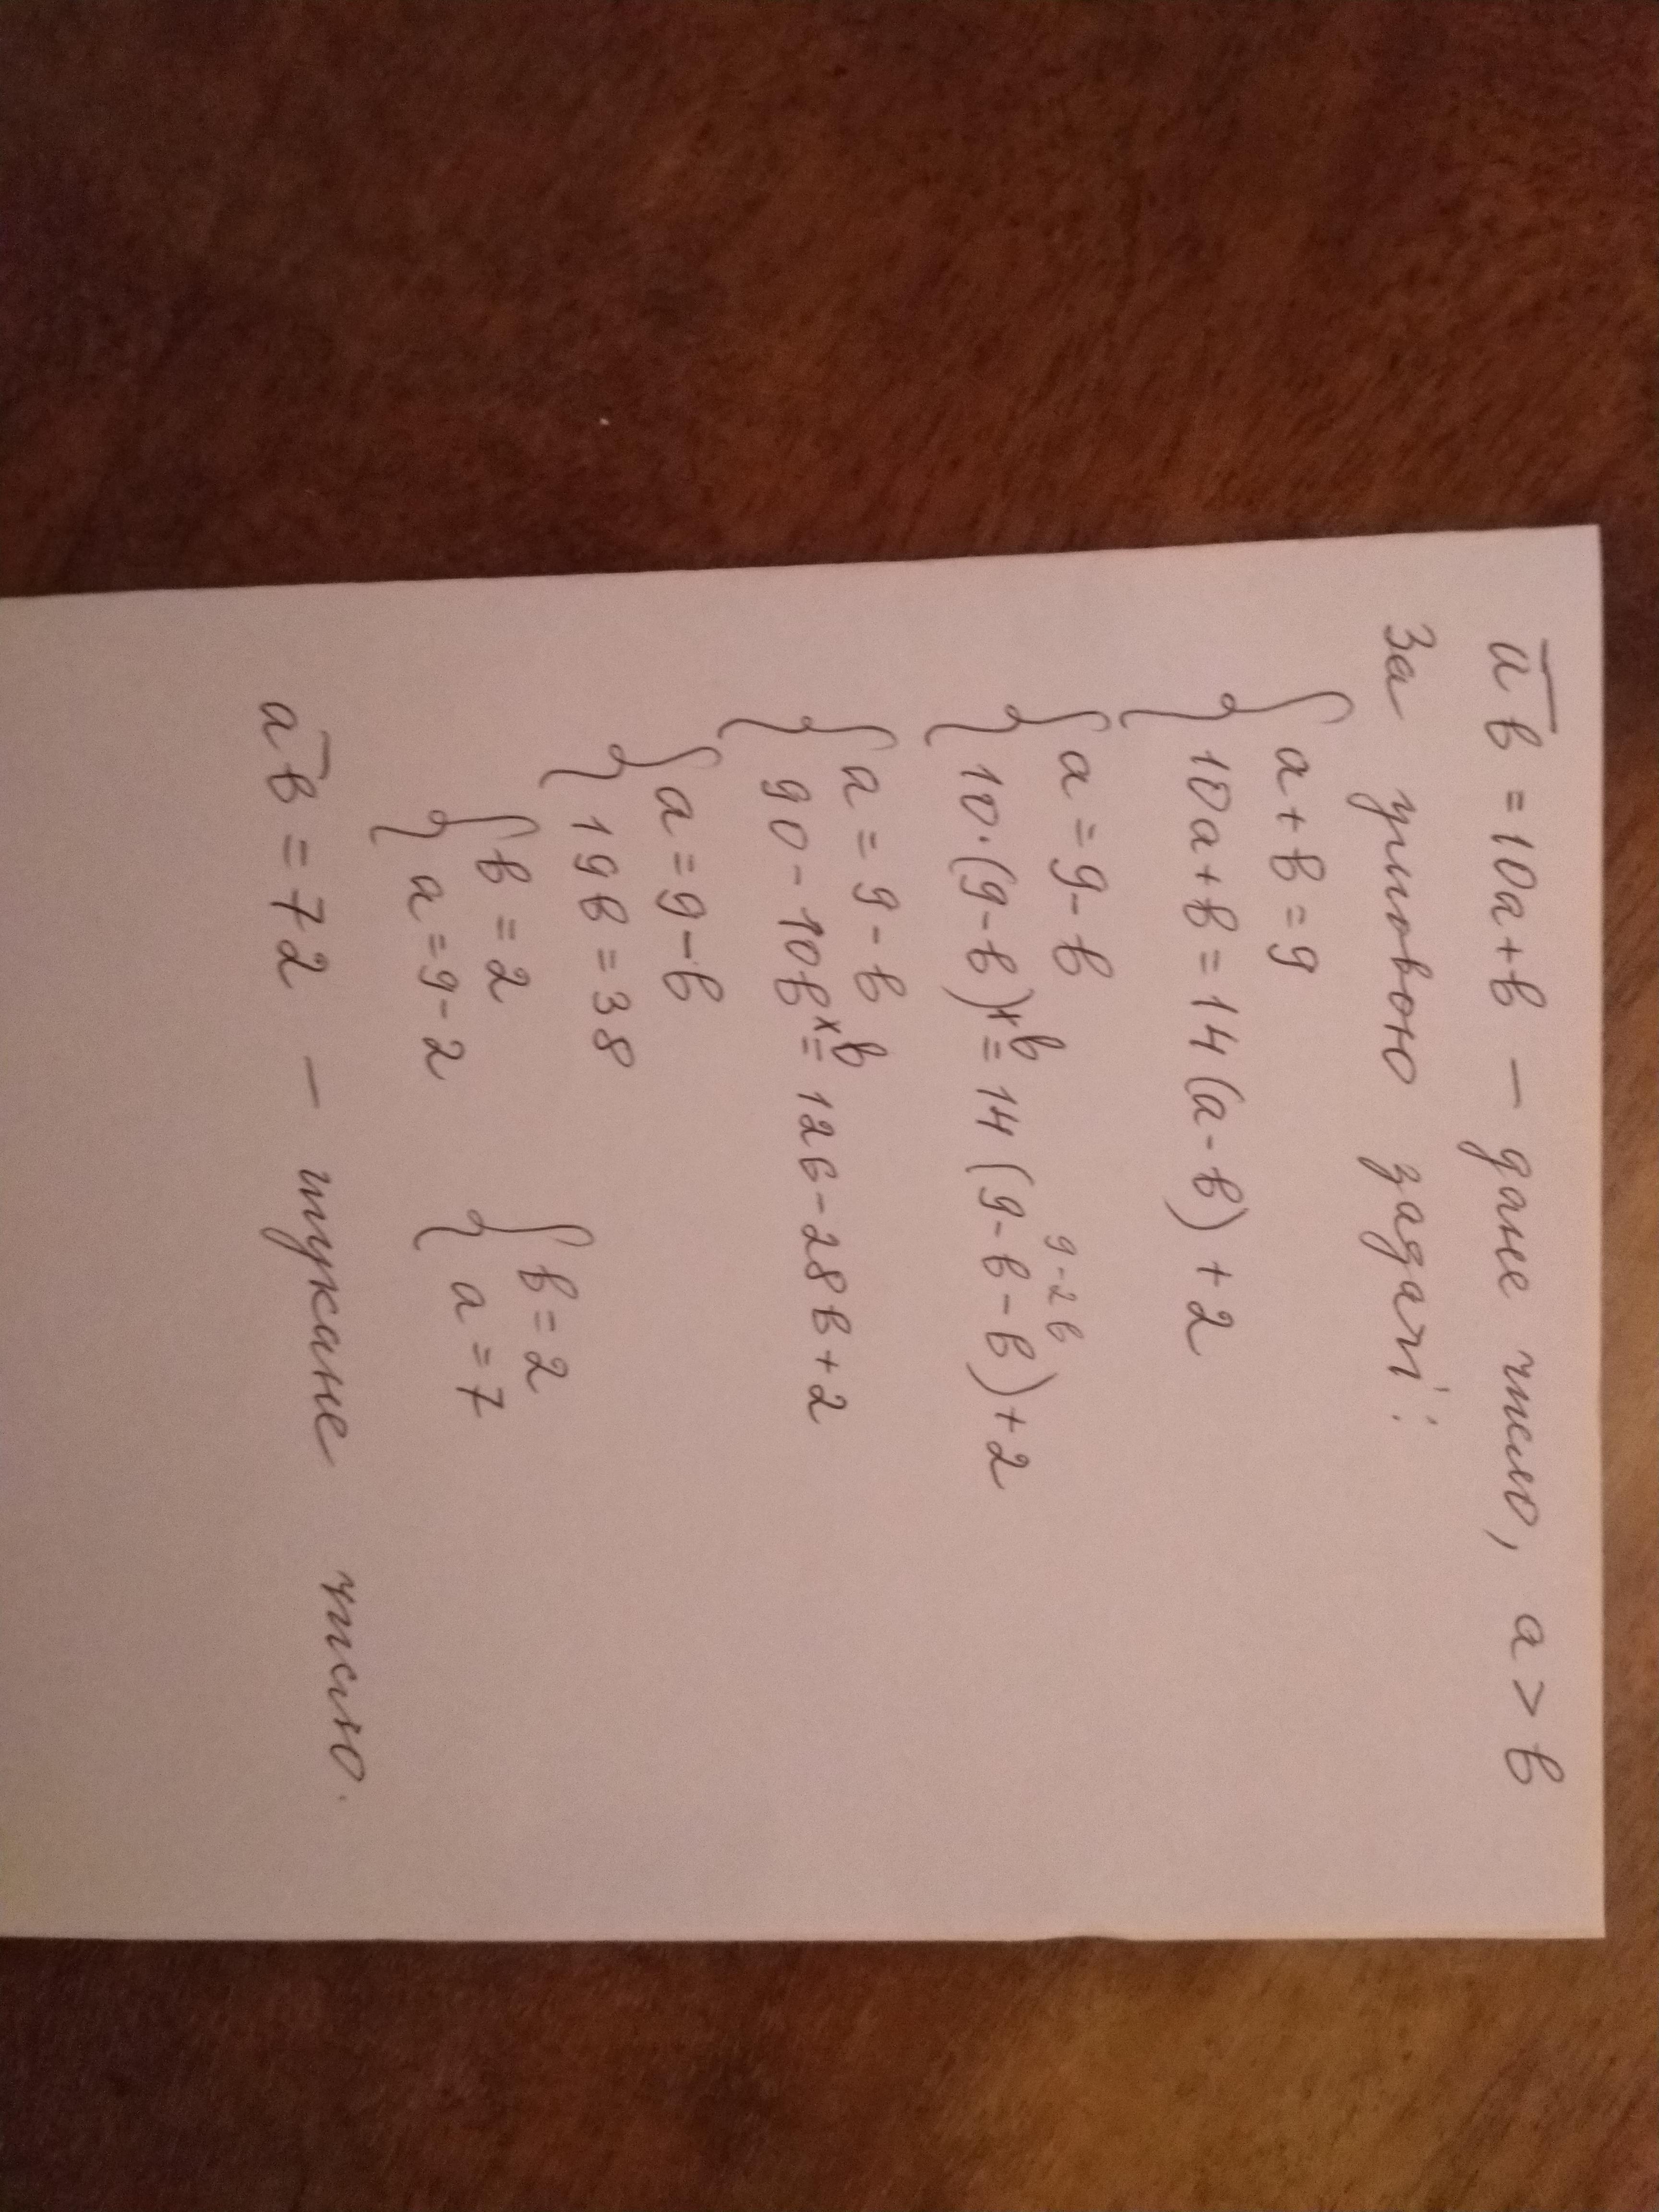 ab = 10a+b — дане число, a > b
За умовою задачі:
{ a + b = 9
{ 10a + b = 14 (a - b) + 2
{ a = 9 - b
9 - 2b
{ 10 · (9 - b) + b = 14 (9 - b - b) + 2
{ a = 9 - b
{ 90 - 10b + b = 126 - 28b + 2
{ a = 9 - b
{ 19b = 38
{ b = 2 { b = 2
{ a = 9 - 2 { a = 7
ab = 72 — шукане число.